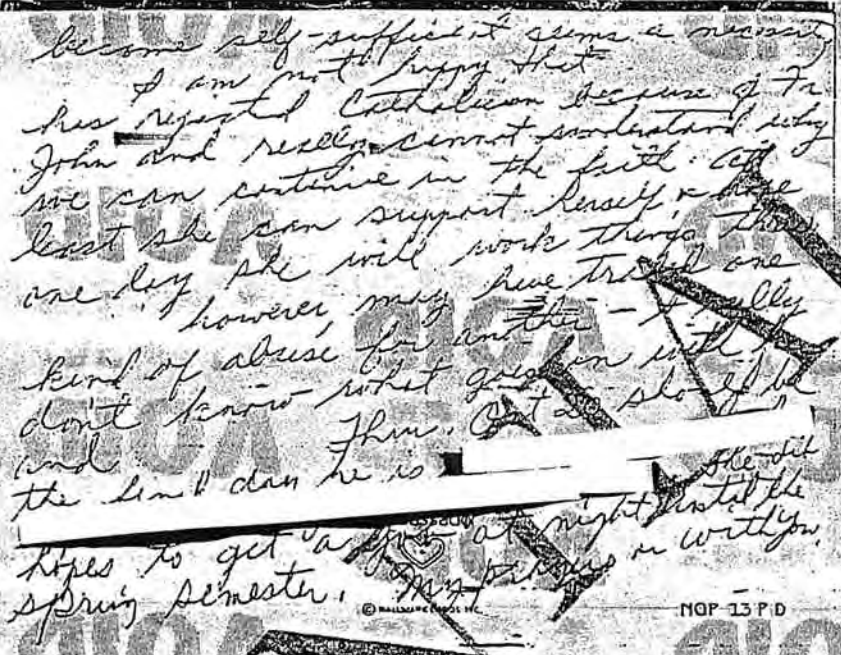 become self-sufficient seems a necessity
I am not happy that
has rejected Catholicism because of Fr
John and really cannot understand why
we can continue in the faith. At
least she can support herself & hope
one day she will work things thru
however may have traded one
kind of abuse for another - I really
don't know what goes on with
and Thur. Oct 20 should be
the final day he is
she
hopes to get a job at night until the
spring semester. My prayers r with you.
© HALLMARK CARDS INC.
NOP 13 P D
VOID